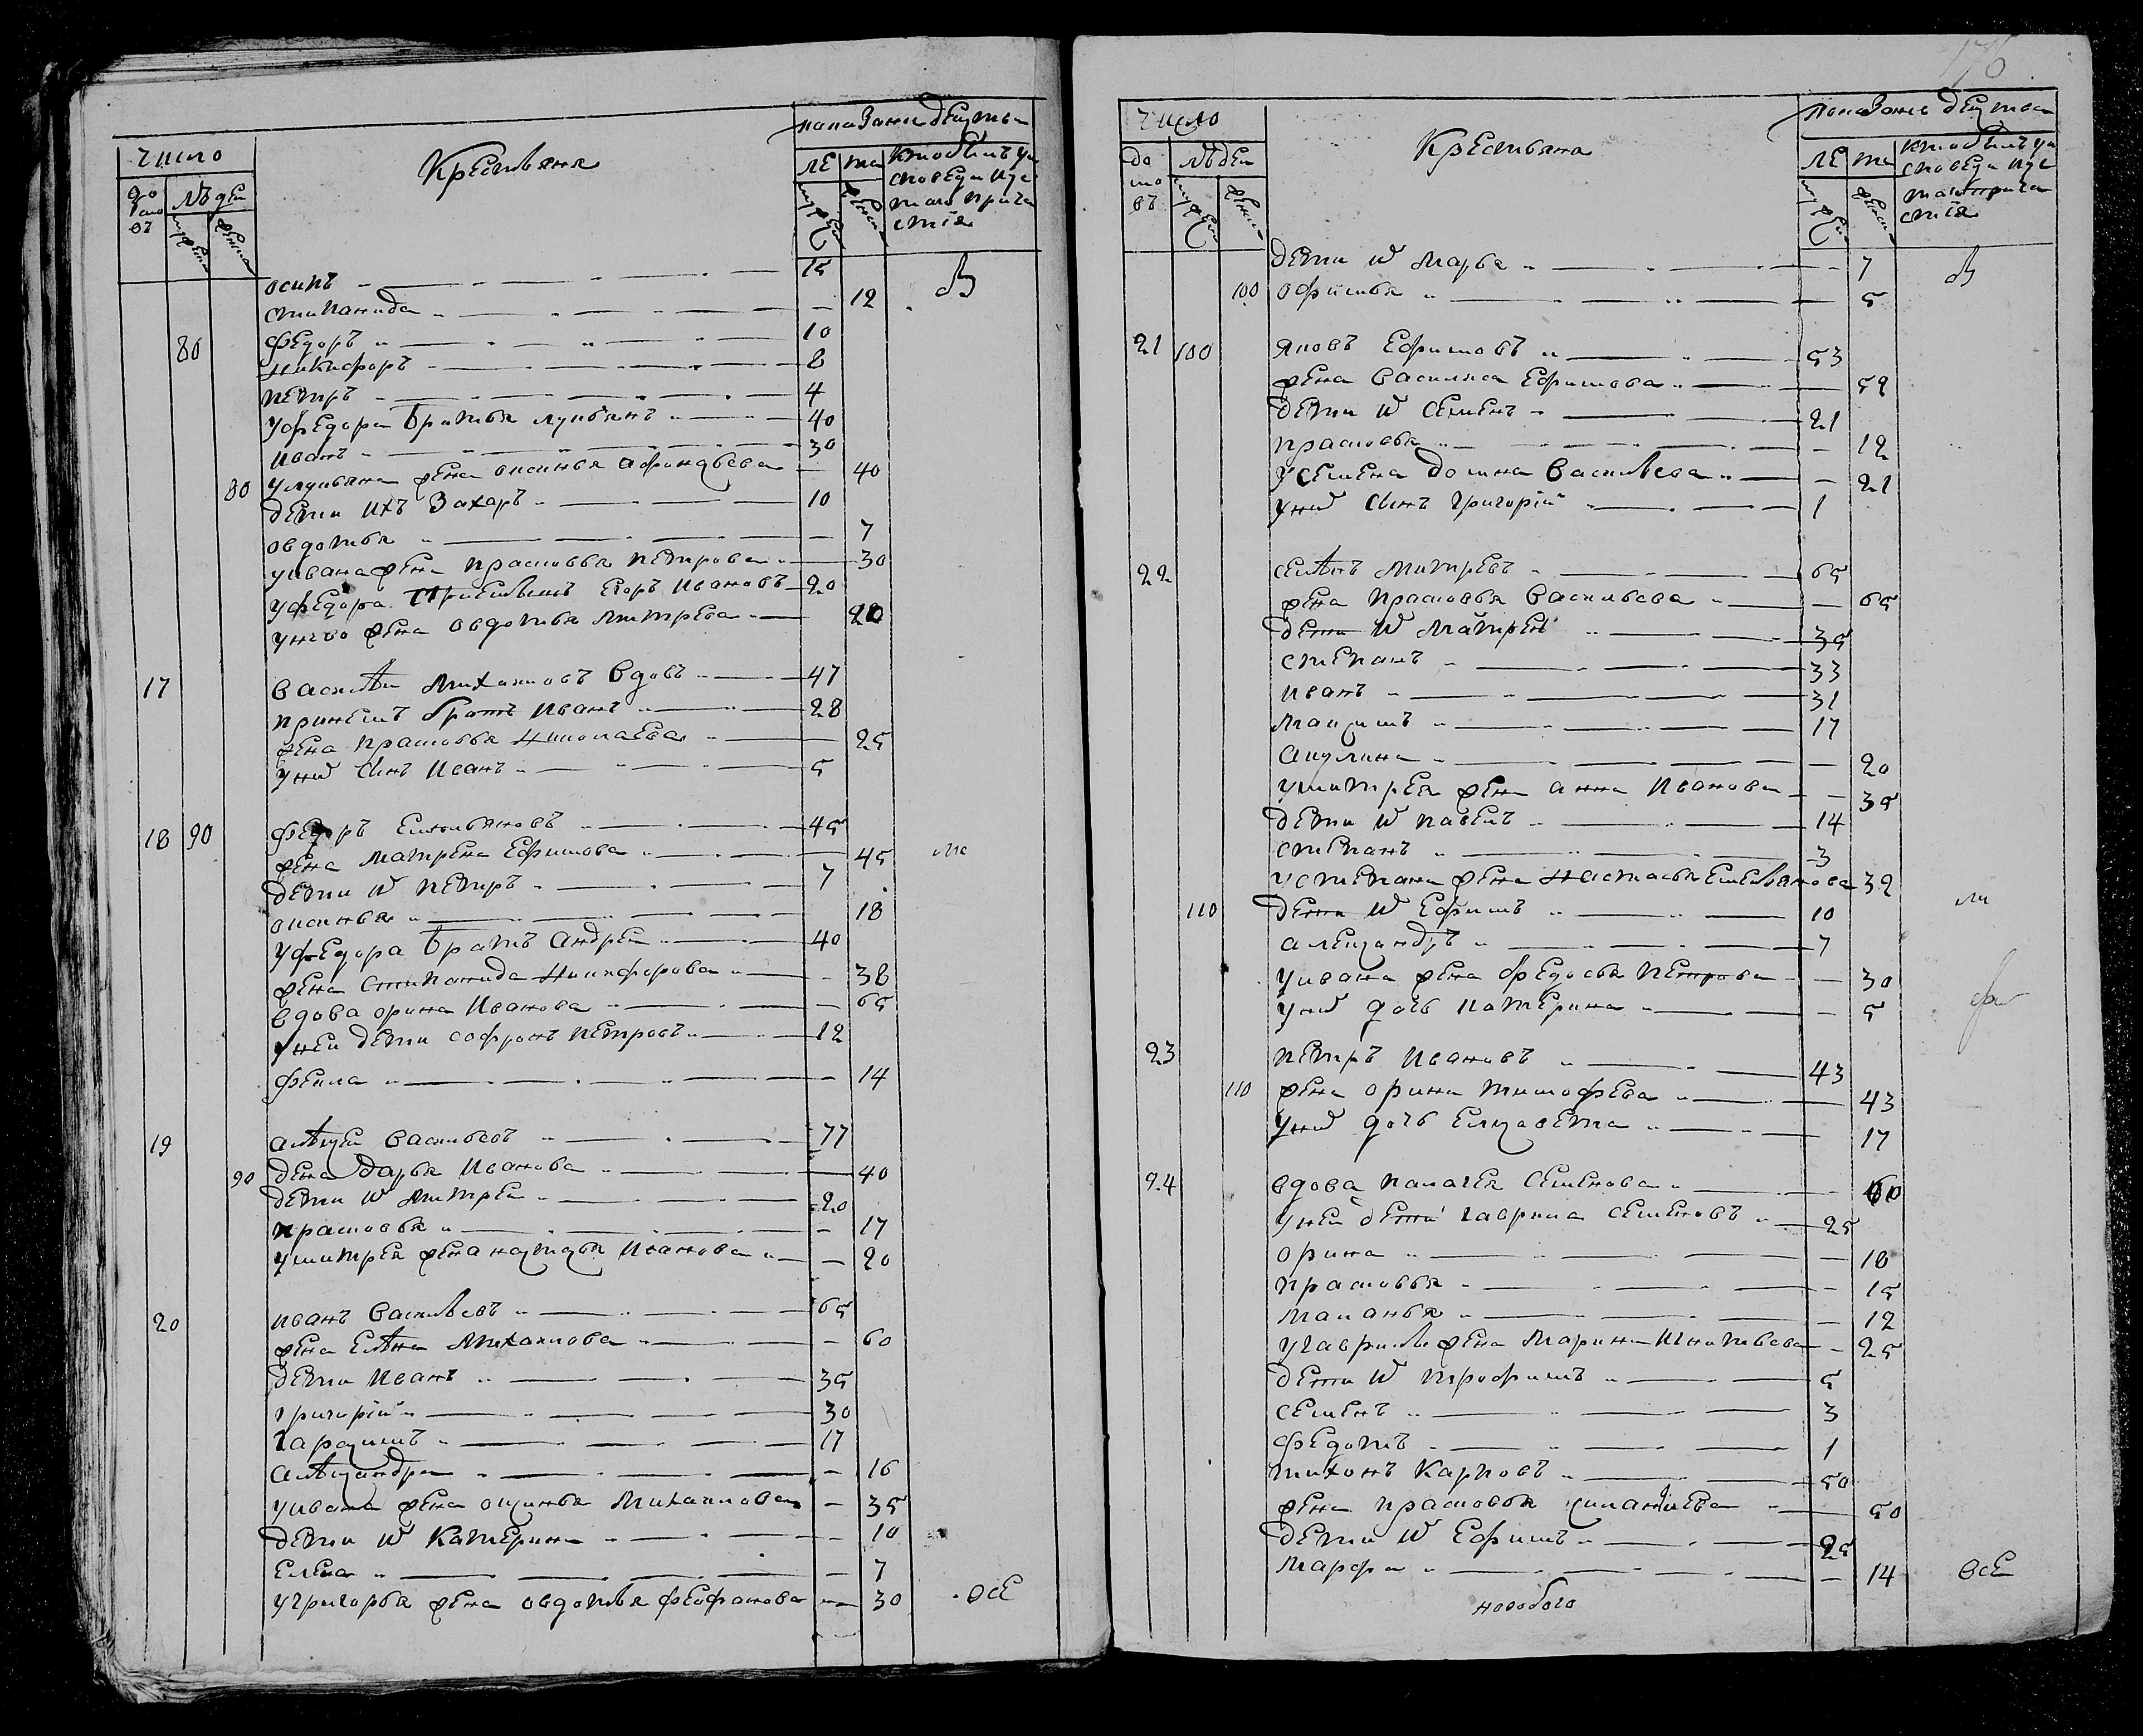 число
Крестьяня
показание действа
домовъ
людей
мужеска
женска
лета
мужеска
женска
кто былъ у исповеди и святаго причастiя
осипъ 15
стипанида 12
86 федоръ 10
никифоръ 8
петръ 4
у федора братья лукьянъ 40
иванъ 30
80 у лукьяна жена аксинья афонасьева 40
дети ихъ захаръ 10
овдотья 7
у ивана жена прасковья петрова 30
у федора приемышъ егоръ ивановъ 20
у него жена овдотья митрева 20
17 василѣи михаиловъ вдовъ 47
при немъ братъ иванъ 28
жена прасковья николаева 25
у них сынъ иванъ 5
18 90 федоръ емельяновъ 45
жена матрена ефимова 45
дети их петръ 7
аксинья 18
у федора братъ андреи 40
жена стипанида никифорова 38
вдова орина иванова 65
у неи дети софронъ петровъ 12
фекла 14
19 алѣксеи васильевъ 77
90 жена дарья иванова 40
дети их митреи 20
прасковья 17
у митрея жена настасья иванова 20
20 иванъ васильевъ 65
жена елѣна михаилова 60
дети иванъ 35
григорiй 30
гарасимъ 17
алѣксандра 16
у ивана жена оксинья михаилова 35
дети их катерина 10
елена 7
у григорья жена овдотья феофанова 30
все
176
число
Крестьяна
показание действа
домовъ
людей
мужеска
женска
лета
мужеска
женска
кто былъ у исповеди и святаго причастiя
дети их марья 7
100 офимья 5
21 100 яковъ ефимовъ 53
жена василиса ефимова 52
дети их семенъ 21
прасковья 12
у семена домна васильева 21
у них сынъ григорiй 1
22 семѣнъ митревъ 65
жена прасковья васильева 65
дети их митреи 35
степанъ 33
иванъ 31
максимъ 17
акулина 20
у митрея жена анна иванова 35
дети их павелъ 14
степанъ 3
у степана жена настасья емельянова 32
110 дети их ефимъ 10
александръ 7
у ивана жена федосья петрова 30
у них дочь катерина 5
23 петръ ивановъ 43
110 жена орина тимофева 43
у них дочь елизавета 17
24 вдова палагея семенова 60
у неи дети гаврила семеновъ 25
орина 18
прасковья 15
маланья 12
у гаврилы жена марина игнатьева 25
дети их трофимъ 5
семенъ 3
федотъ 1
тихонъ карповъ 50
жена прасковья 50
дети их ефимъ 25
марфа 14
все